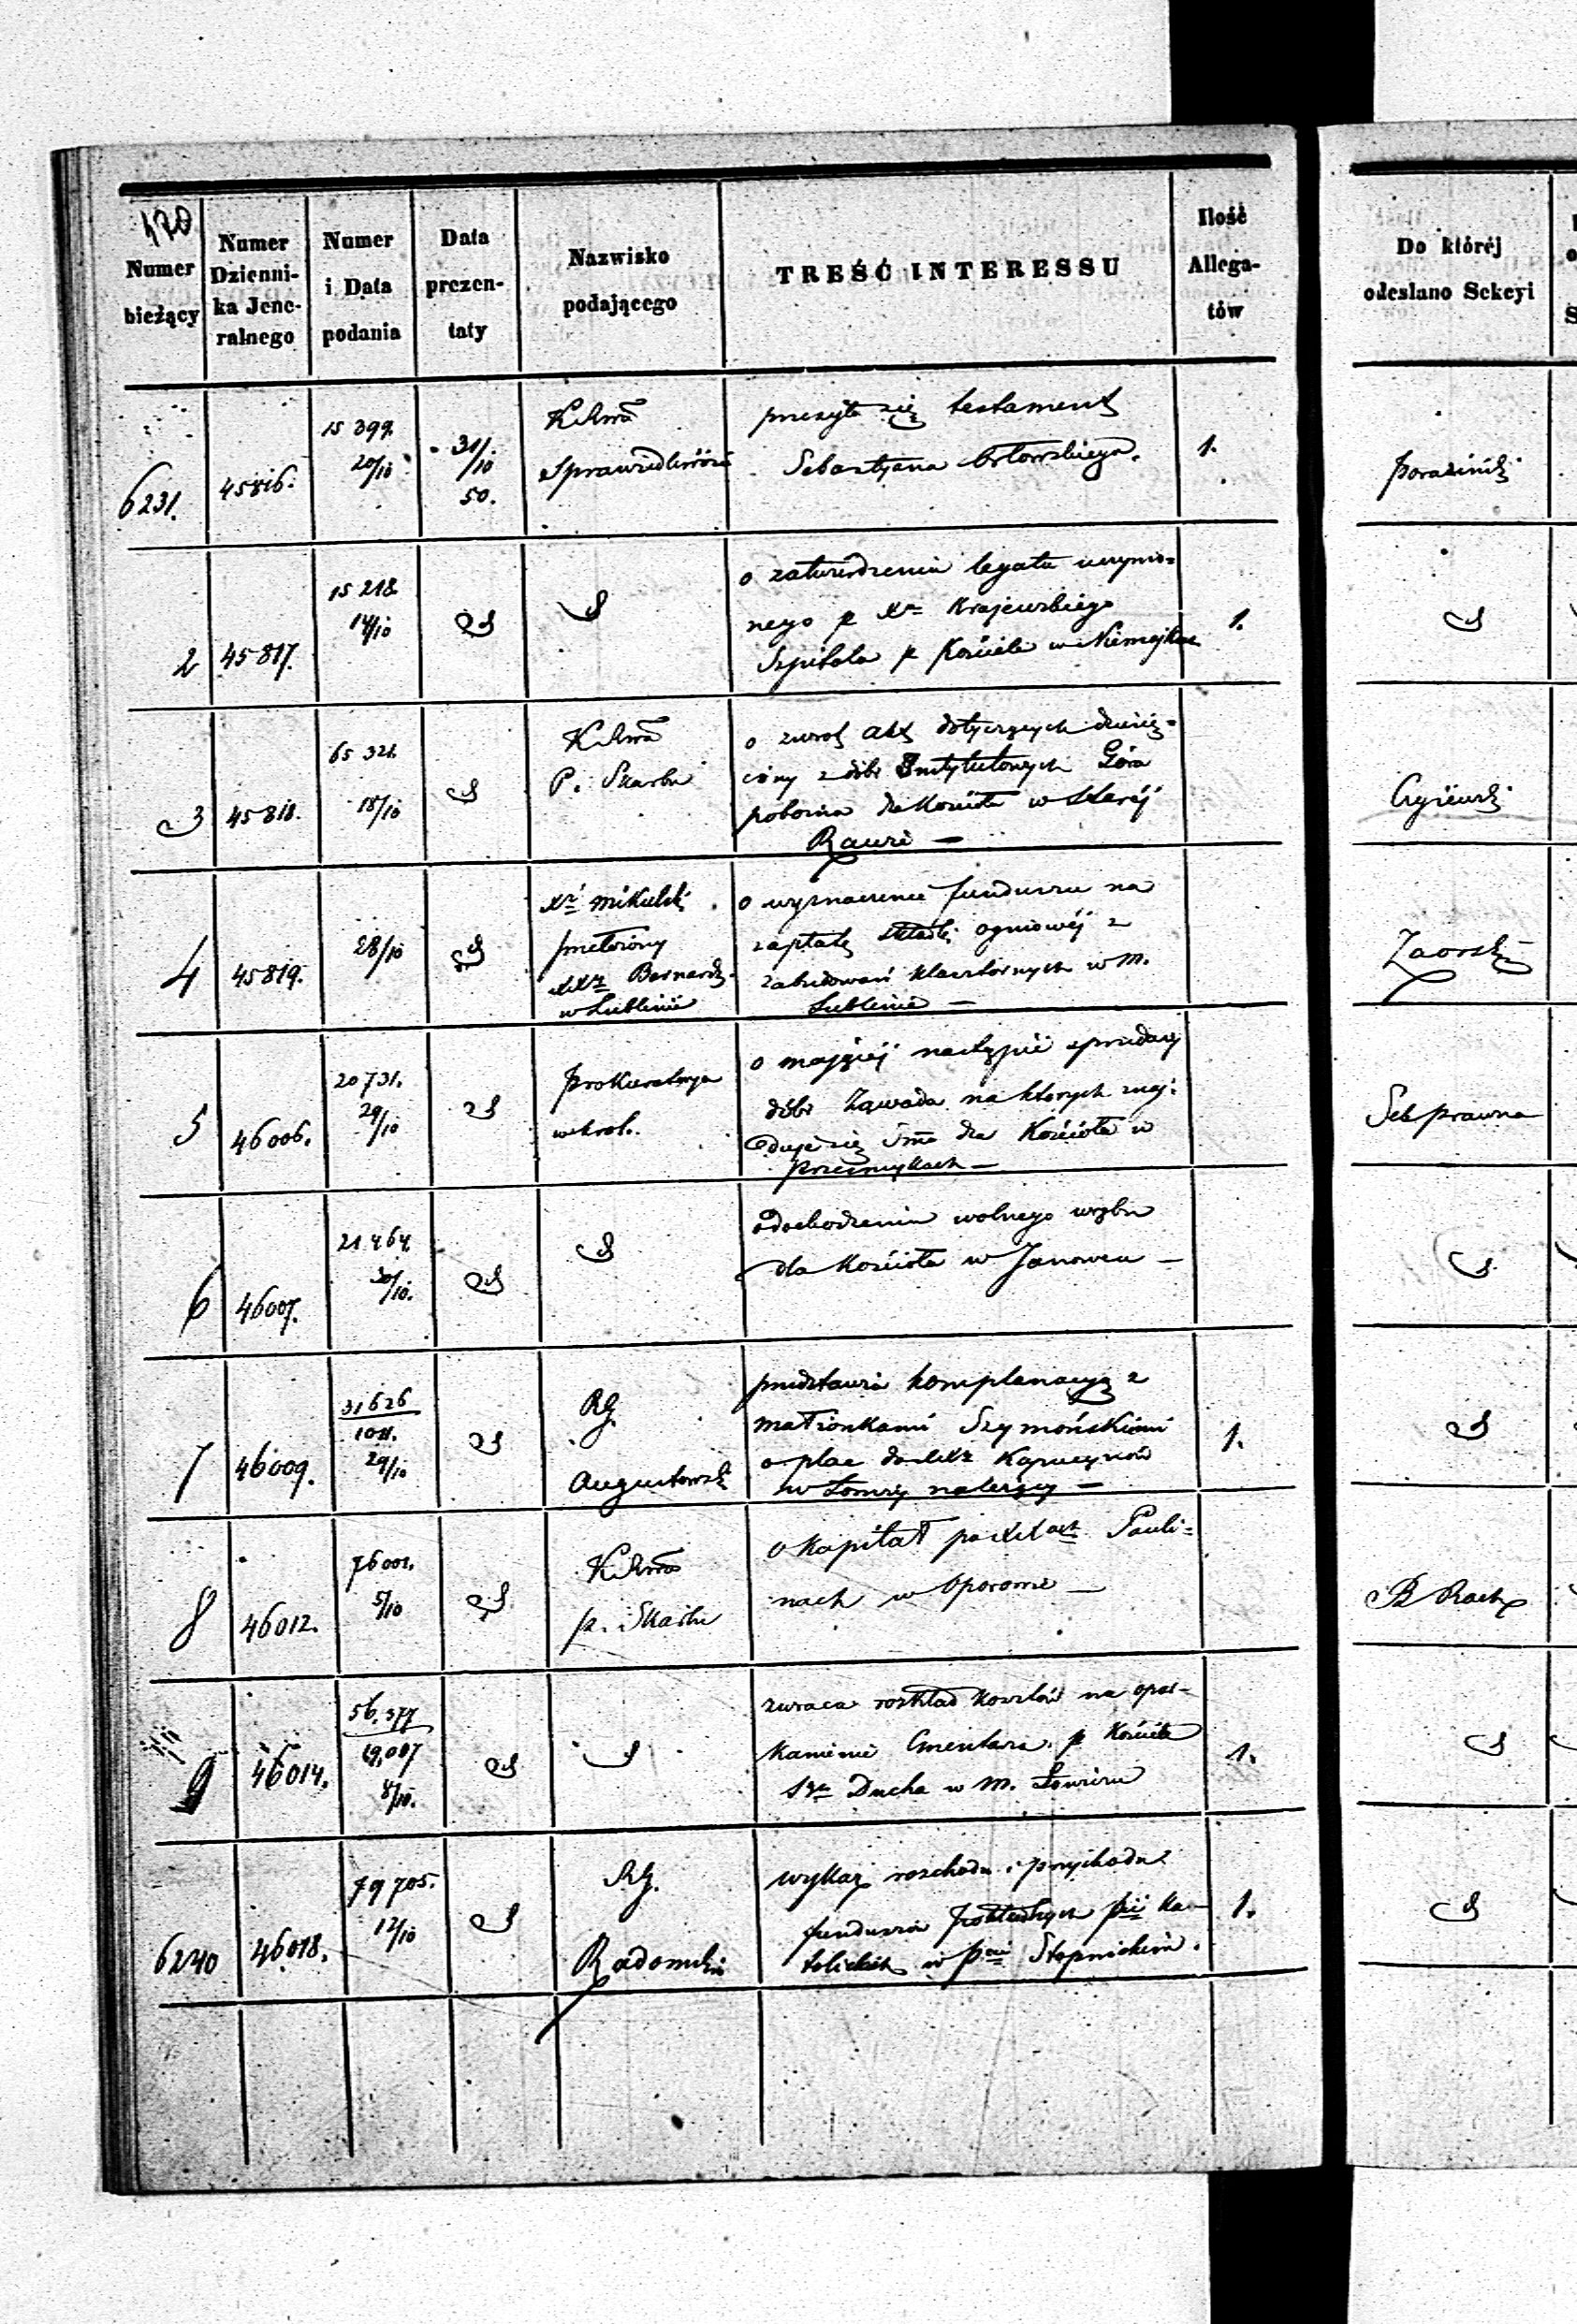 470
Numer bieżący
Numer Dzienni-ka Jene-ralnego
Numer i Data podania
Data prezen-taty
Nazwisko podającego
TREŚĆ INTERESSU
Ilość Allega-tów
Do któréj odesłano Sekcyi
6231. 45816. 15 399. 20/10 31/10 50.
Sprawiedliwości
przesyła się testament
Sebastyana Orłowskiego.
1.
2 45817. 15 218 14/10
o zatwierdzenie legatu uczynio=
nego p Xa Krajewskiego
Szpitala p Kościele w
1.
3 45818. 65 321. 18/10
P. Skarbu
o zwrot akt dotyczących dziesię=
ciny z dóbr Instytutowych Góra
poborna dla Kościoła w Staréj
Rawie —
4 45819. 28/10
Xdz Mikulski
przełożony
XXzy Bernard.
w Lublinie
o wyznaczenie funduszu na
zapłatę składki ogniowéj z
zabudowań klasztornych w m.
Lublinie —
Zaorski
5 46006. 20 731. 29/10
Prokuratorya
w Król.
o mającéj nastąpić sprzedaży
dóbr Zawada na których znaj-
duje się Sma dla Kościoła w
Przesmykach —
Sek prawna
6 46007. 21 464. 30/10.
o dochodzeniu wolnego wrębu
dla Kościoła w Janowcu —
7 46009. 31626 1011. 29/10
RG.
Augustowski
przedstawia komplanacyą z
małżonkami Szymońskiemi
o plac do XXzy Kapucynów
w Łomży należący —
1.
8 46012. 76001. 5/10
p. Skarbu
o kapitał po XXach Pauli=
nach w Oporowie —
9 46014. 56,377 19,007 8/10.
zwraca rozkład kosztów na opar-
kanienie Cmentarza p Kościele
Sgo Ducha w m. Łowiczu
1.
6240 46018. 79 705. 12/10
RG.
Radomski
wykaz rozchodu i przychodu
funduszów pokładnych pii ka-
tolickich w Pcie Stopnickim.
1.